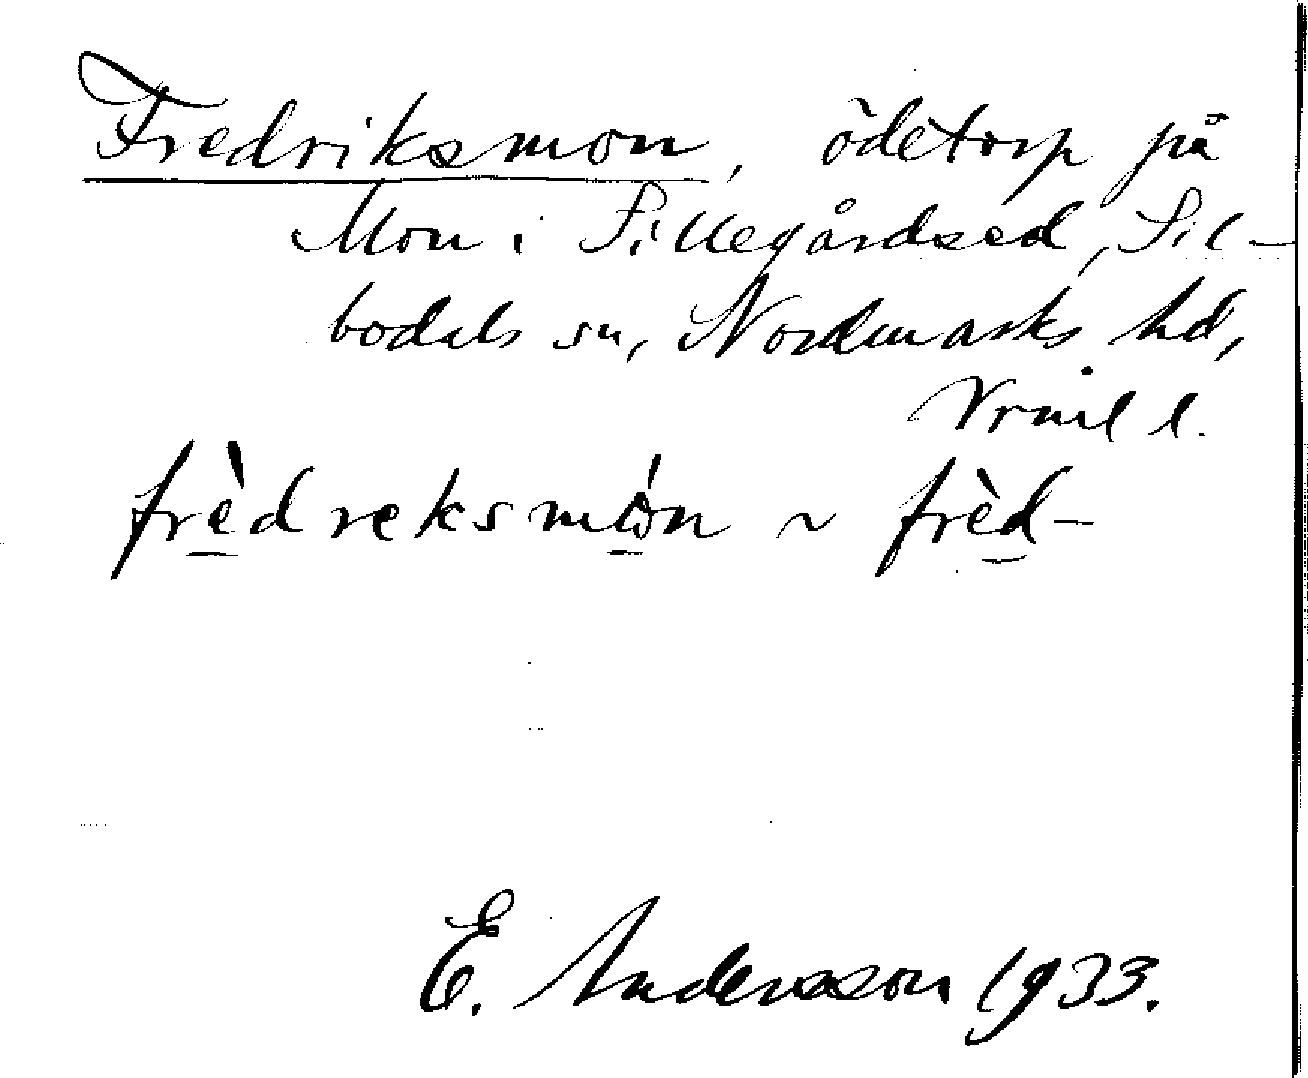 Fredriksmon, ödetorp på
Mon i Sillegårdsed, Sil-
bodals sn, Nordmarks hd,
Vrml l.
frèdreksmón ~ frèd-
E. Andersson 1933.